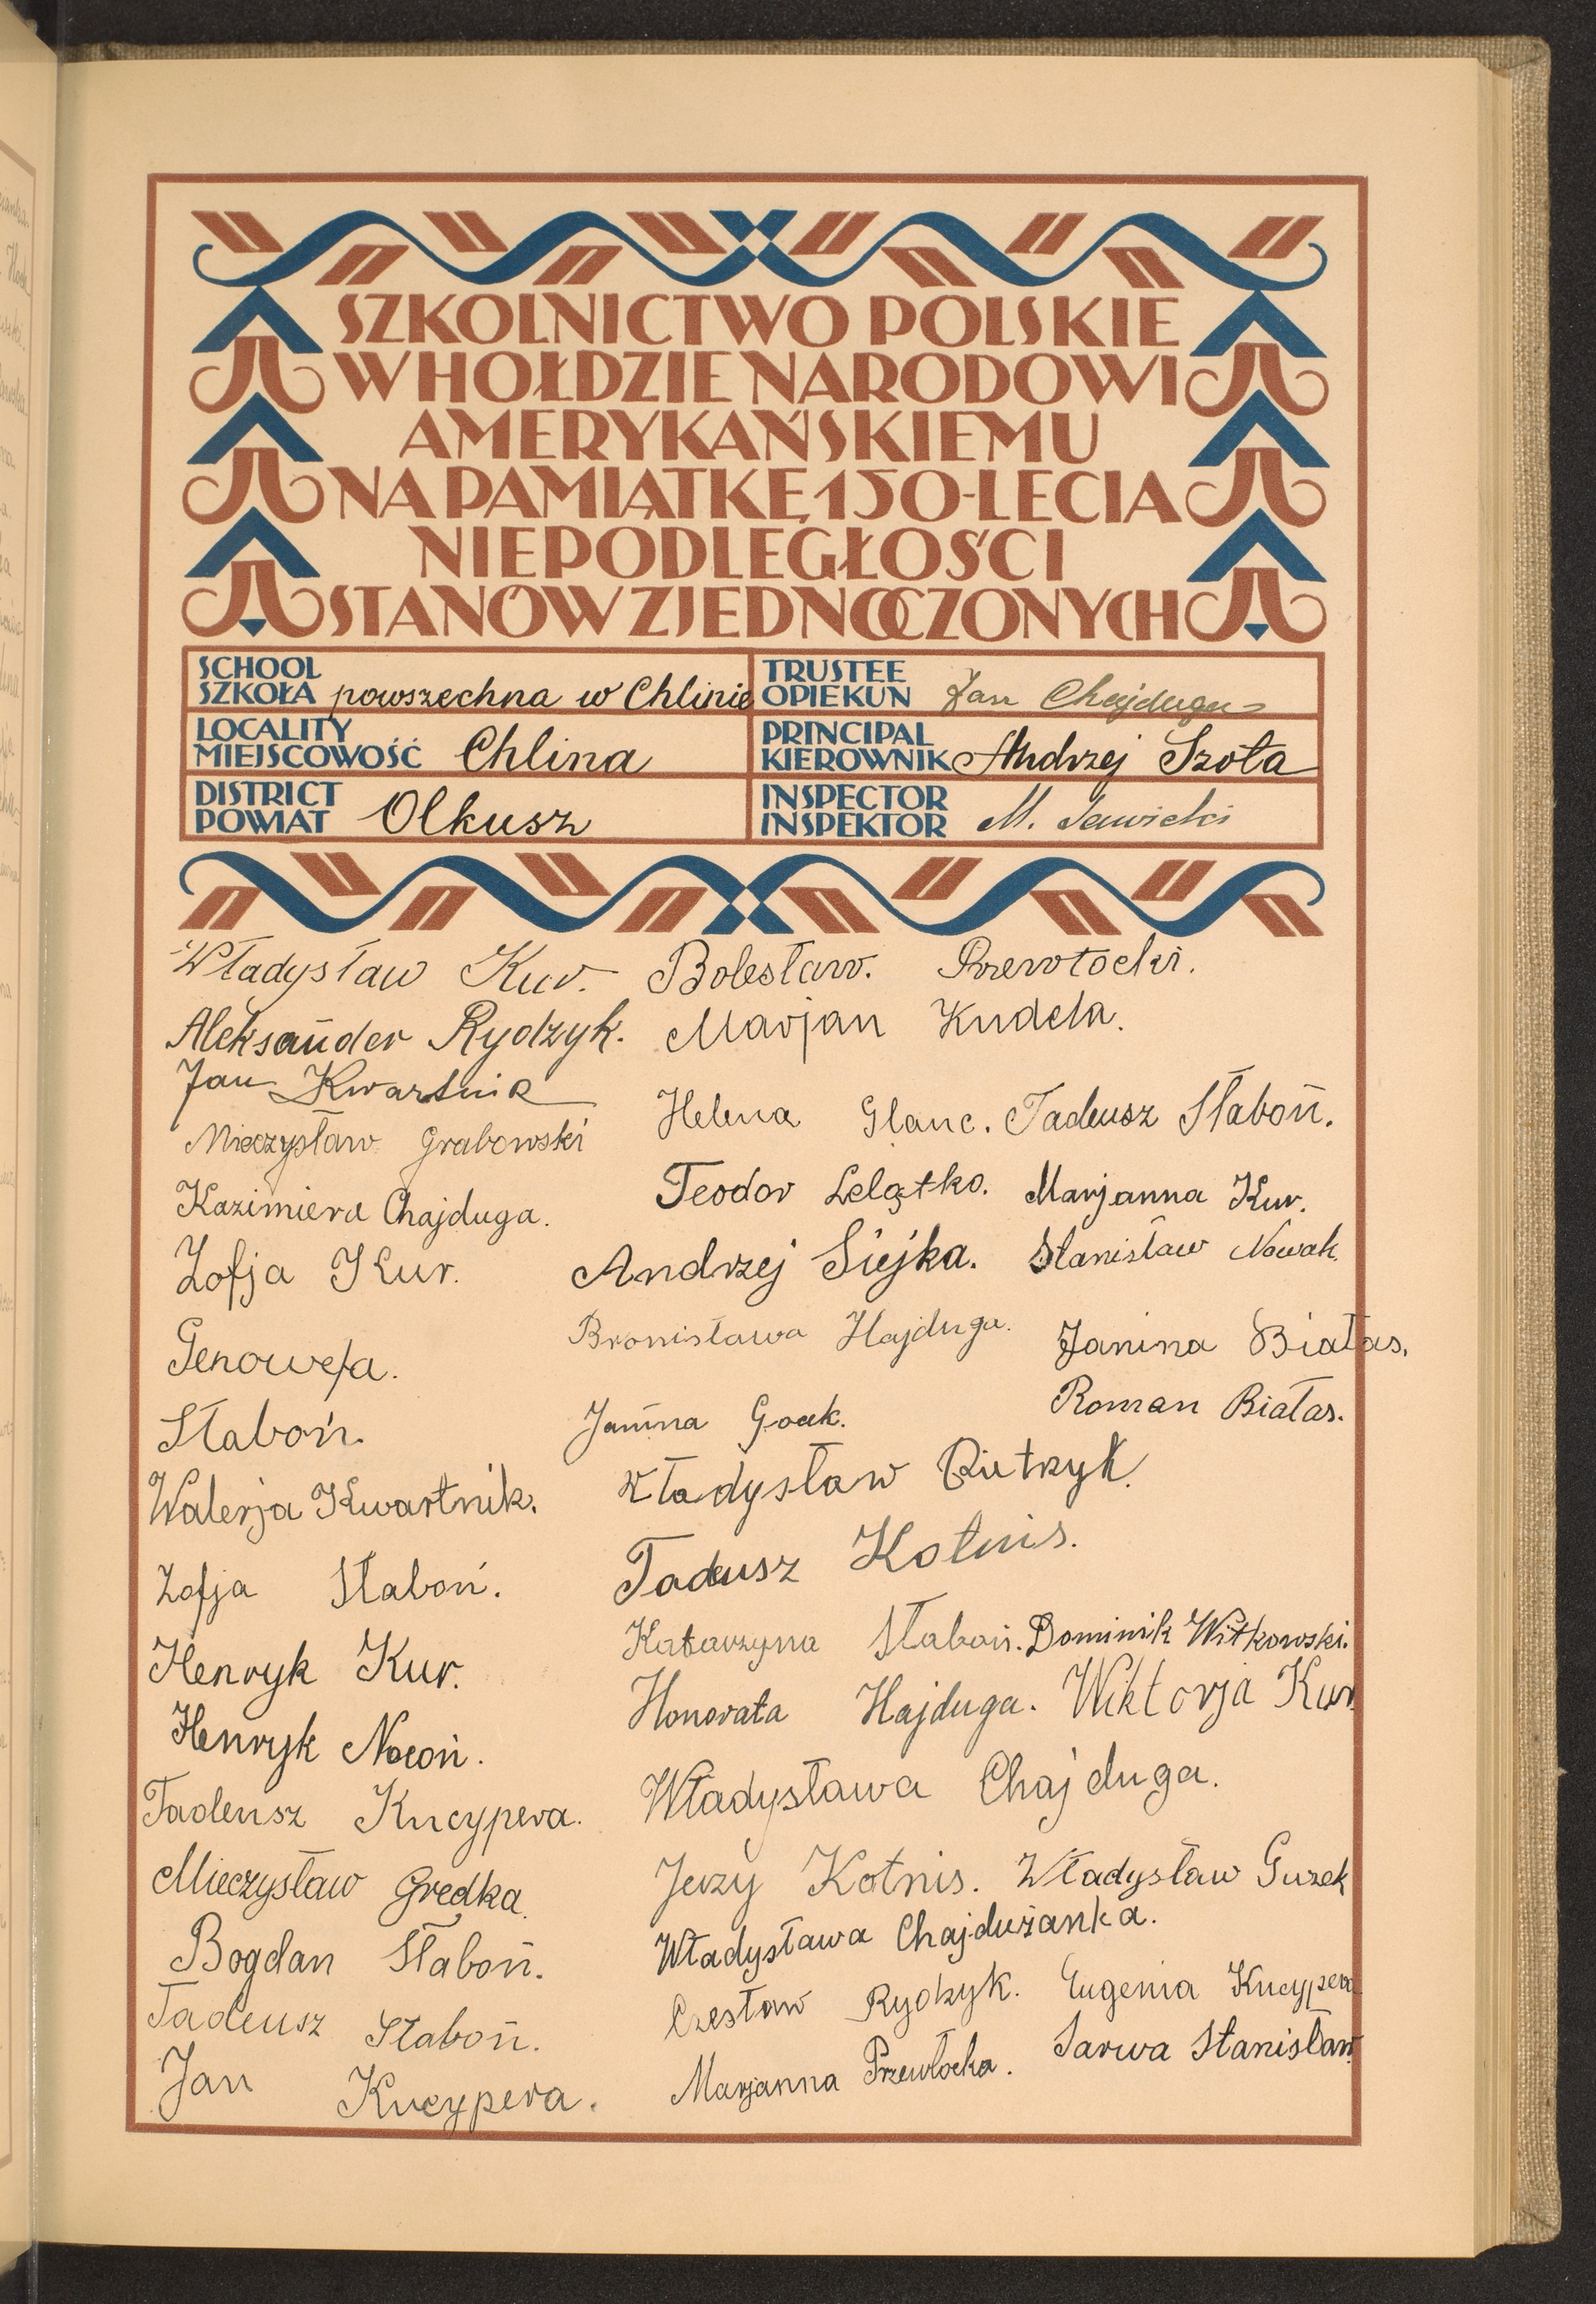 SZKOLNICTWO POLSKIE
W HOŁDZIE NARODOWI
AMERYKAŃSKIEMU
NA PAMIĄTKĘ 150-LECIA
NIEPODLEGŁOŚCI
STANÓW ZJEDNOCZONYCH
SCHOOL
SZKOŁA powszechna w Chlinie
TRUSTEE
OPIEKUN Jan Chajduga
LOCALITY
MIEJSCOWOŚĆ Chlina
PRINCIPAL
KIEROWNIK Andrzej Szota
DISTRICT
POWIAT Olkusz
INSPECTOR
INSPEKTOR M. Sawicki
Władysław Kur. Bolesław. Przewłocki.
Aleksander Rydzyk. Marjan Kudela.
Jan Kwartnik
Helena Glanc. Tadeusz Słaboń.
Mieczysław Grabowski
Teodor Lelątko. Marjanna Kur.
Kazimiera Chajduga.
Zofja Kur. Andrzej Siejka. Stanisław Nowak.
Bronisława Hajduga. Janina Białas.
Genowefa.
Janina Roman Białas.
Słaboń.
Walerja Kwartnik. Władysław
Zofja Słaboń. Tadeusz Kotnis.
Katarzyna Słaboń. Dominik Witkowski.
Henryk Kur.
Honorata Hajduga. Wiktorja Kur
Henryk Nocoń.
Władysława Chajduga.
Tadeusz Kucypera.
Mieczysław Gredka. Jerzy Kotnis. Władysław Guzek
Władysława Chajdużanka.
Bogdan Słaboń.
Czesław Rydzyk. Eugenia Kucypera
Tadeusz Słaboń.
Marjanna Przewłocka. Sarwa Stanisław
Jan Kucypera.